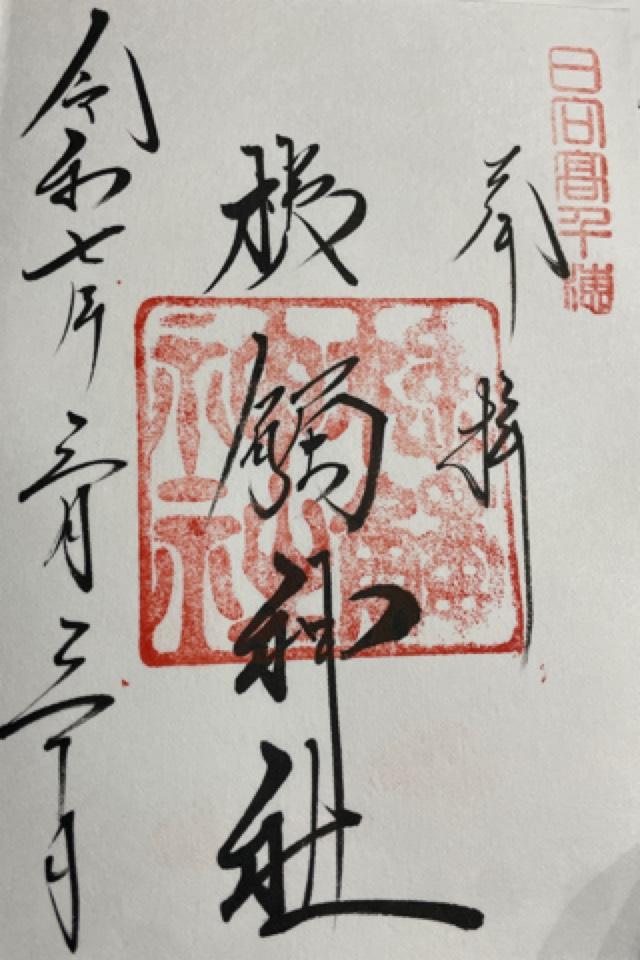 日向高千穂
奉拝
槵觸神社
令和七年三月三十日